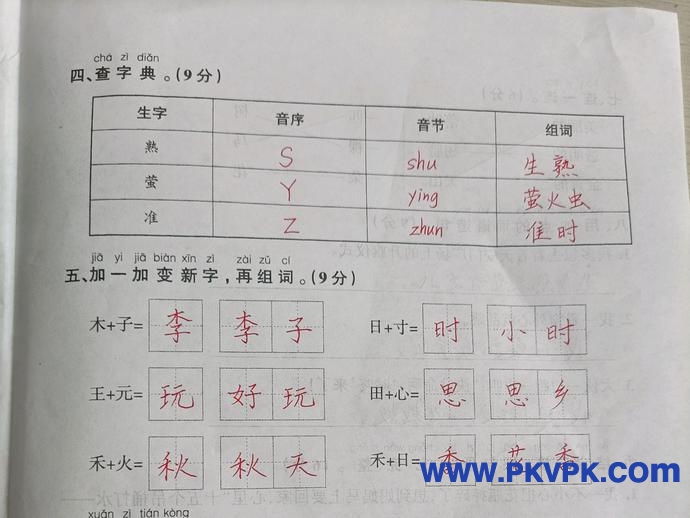 chá zì diǎn
四、查字典。(9分)
生字 音序 音节 组词
熟 S shu 生熟
萤 Y ying 萤火虫
准 Z zhun 准时
jiā yi jiā biàn xīn zì zài zǔ cí
五、加一加变新字,再组词。(9分)
木+子= 李 李子 日+寸= 时 小时
王+元= 玩 好玩 田+心= 思 思乡
禾+火= 秋 秋天 禾+日= 香
www.PKVPK.com
xuǎn zì tián kòng